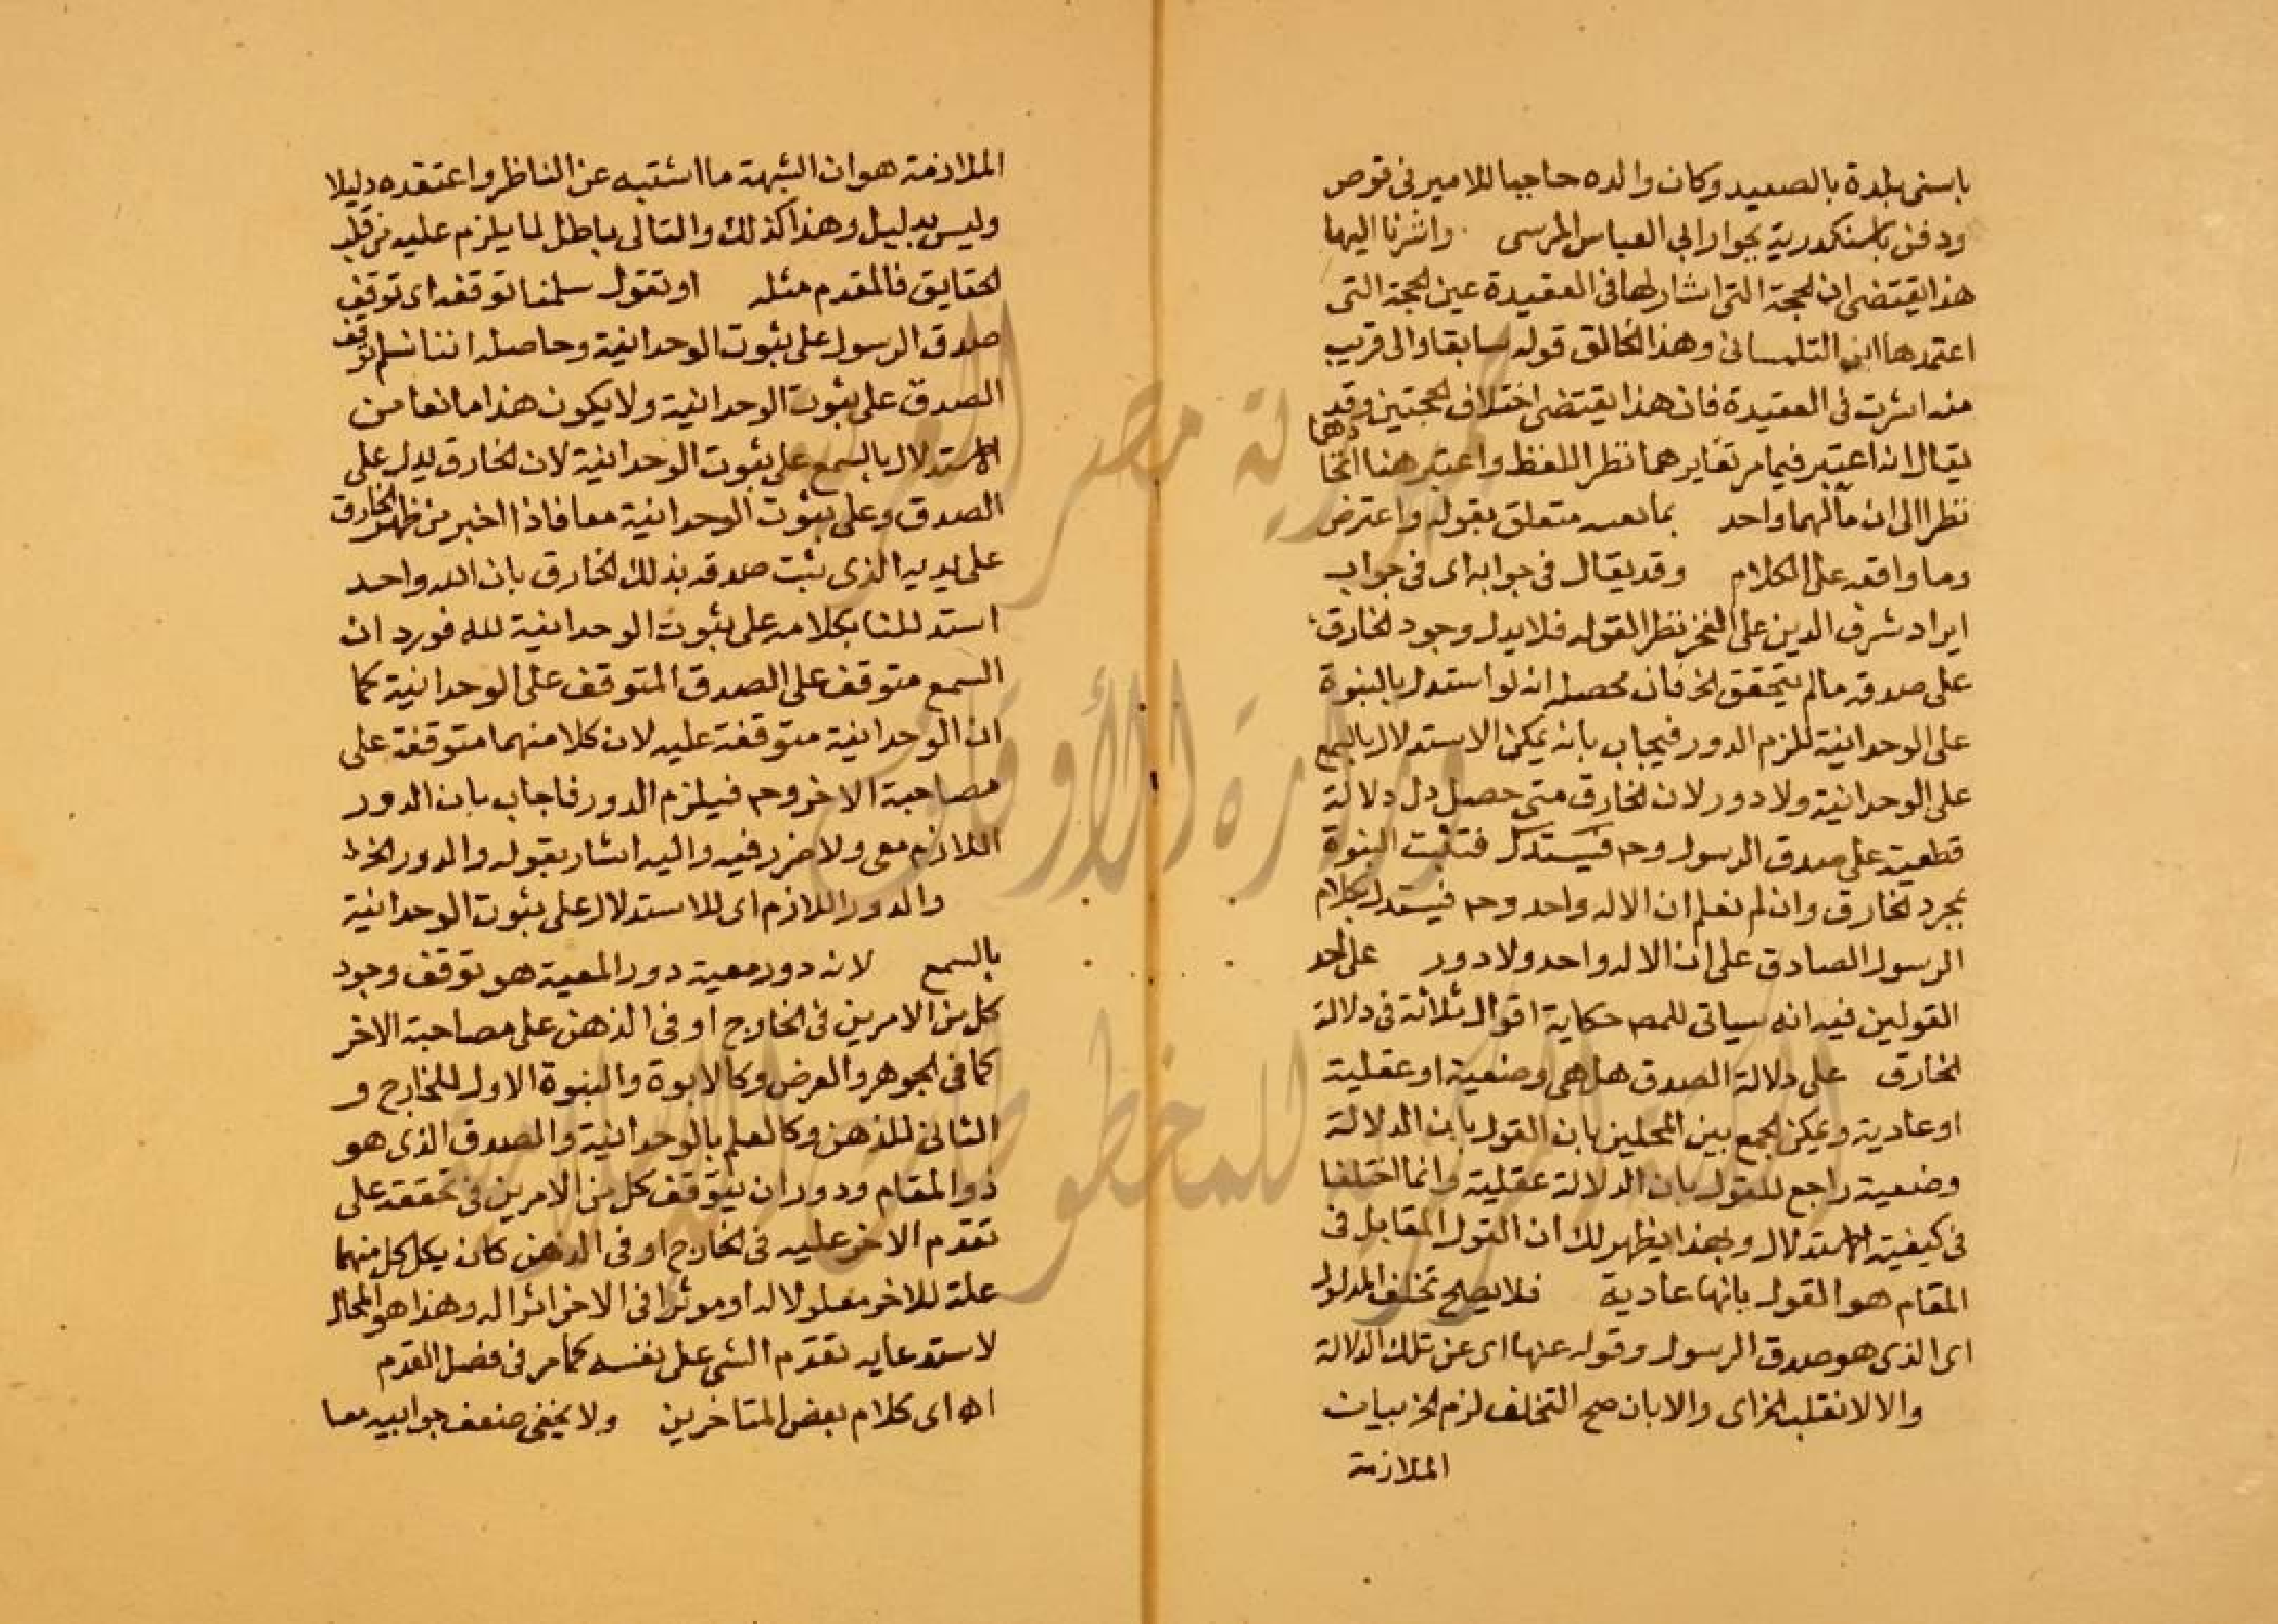 باسنى بلدة بالصعيد وكان والده حاجبا للامير فى قوص
ودفن باسكندرية بجوار ابى العباس المرسى واشرنا اليها
هذا يقتضى ان الحجة التى اشار لها فى العقيدة عين الحجة التى
اعتمدها ابن التلمسانى وهذا يخالف قوله سابقا والى قريب
منه اشرت فى العقيدة فان هذا يقتضى اختلاف الحجتين وقد
يقال انه اعتبر فيما مر تغايرهما نظرا للفظ واعتبر هنا اتحادهما
نظرا الى ان مآلهما واحد بمانعه متعلق بقوله واعترض
وما وافقه على الكلام وقد يقال فى جوابه اى فى جواب
ايراد شرف الدين على الفخر نظرا لقوله فلا يدل وجود الخارق
على صدقه مالم يتحقق الخ فان محصله انه لو استدل بالنبوة
على الوحدانية للزم الدور فيجاب بانه يمكن الاستدلال بالسمع
على الوحدانية ولا دور لان الخارق متى حصل دل دلالة
قطعية على صدق الرسول وح فيستدل فتثبت النبوة
بمجرد الخارق وان لم نعلم ان الاله واحد وح فيستدل بكلام
الرسول الصادق على ان الاله واحد ولا دور على احد
القولين فيه انه سياتى للمص حكاية اقوال ثلاثة فى دلالة
الخارق على دلالة الصدق هل هى وضعية او عقلية
او عادية ويمكن الجمع بين المحلين بان القول بان الدلالة
وضعية راجع للقول بان الدلالة عقلية وانما اختلفا
فى كيفية الاستدلال وبهذا يظهر لك ان القول المقابل فى
المقام هو القول بانها عادية فلا يصلح تخلف المدلول
اى الذى هو صدق الرسول وقوله عنها اى عن تلك الدلالة
والا لانقلب الخ اى والا بان صح التخلف لزم الخ بيان
الملازمة
الملازمة هو ان الشبهة ما اشتبه عن الناظر واعتقده دليلا
وليس بدليل وهذا كذلك والتالى باطل لما يلزم عليه من قلب
الحقايق فالمقدم مثله او نقول سلمنا توقفه اى توقف
صدق الرسول على ثبوت الوحدانية وحاصله اننا نسلم توقف
الصدق على ثبوت الوحدانية ولا يكون هذا مانعا من
الاستدلال بالسمع على ثبوت الوحدانية لان الخارق يدل على
الصدق وعلى ثبوت الوحدانية معا فاذا اخبر من ظهر الخارق
على يديه الذى ثبت صدقه بذلك الخارق بان الله واحد
استدللنا بكلامه على ثبوت الوحدانية لله فورد ان
السمع متوقف على الصدق المتوقف على الوحدانية كما
ان الوحدانية متوقفة عليه لان كلا منهما متوقفة على
مصاحبة الاخر وح فيلزم الدور فاجاب بان الدور
اللازم معى ولا ضرر فيه واليه اشار بقوله والدور الخ
والدور اللازم اى للاستدلال على ثبوت الوحدانية
بالسمع لانه دور معية دور المعية هو توقف وجود
كل من الامرين فى الخارج او فى الذهن على مصاحبة الاخر
كما فى الجوهر والعرض وكالابوة والبنوة الاول للخارج و
الثانى للذهن وكالعلم بالوحدانية والصدق الذى هو
ذو المقام ودور ان يتوقف كل من الامرين فى تحققه على
تقدم الاخر عليه فى الخارج او فى الذهن كان يكل كل منهما
علة للاخر معلولا له او موثرا فى الاخر اثرا له وهذا هو المحال
لاستدعايه تقدم الشى على نفسه كما مر فى فصل القدم
اه اى كلام بعض المتاخرين ولا يخفى ضعف جوابيه معا